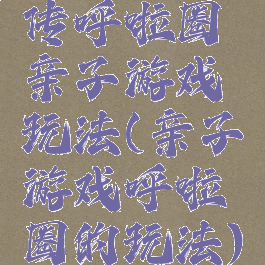 传呼啦圈
亲子游戏
玩法(亲子
游戏呼啦
圈的玩法)